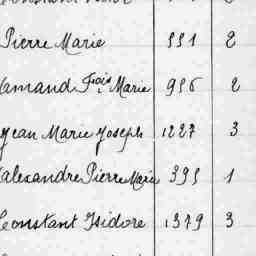 Pierre Marie 551 2
Amand Frois Marie 956 2
Jean Marie Joseph 1227 3
alexandre Pierre Marie 395 1
Constant Isidore 1379 3